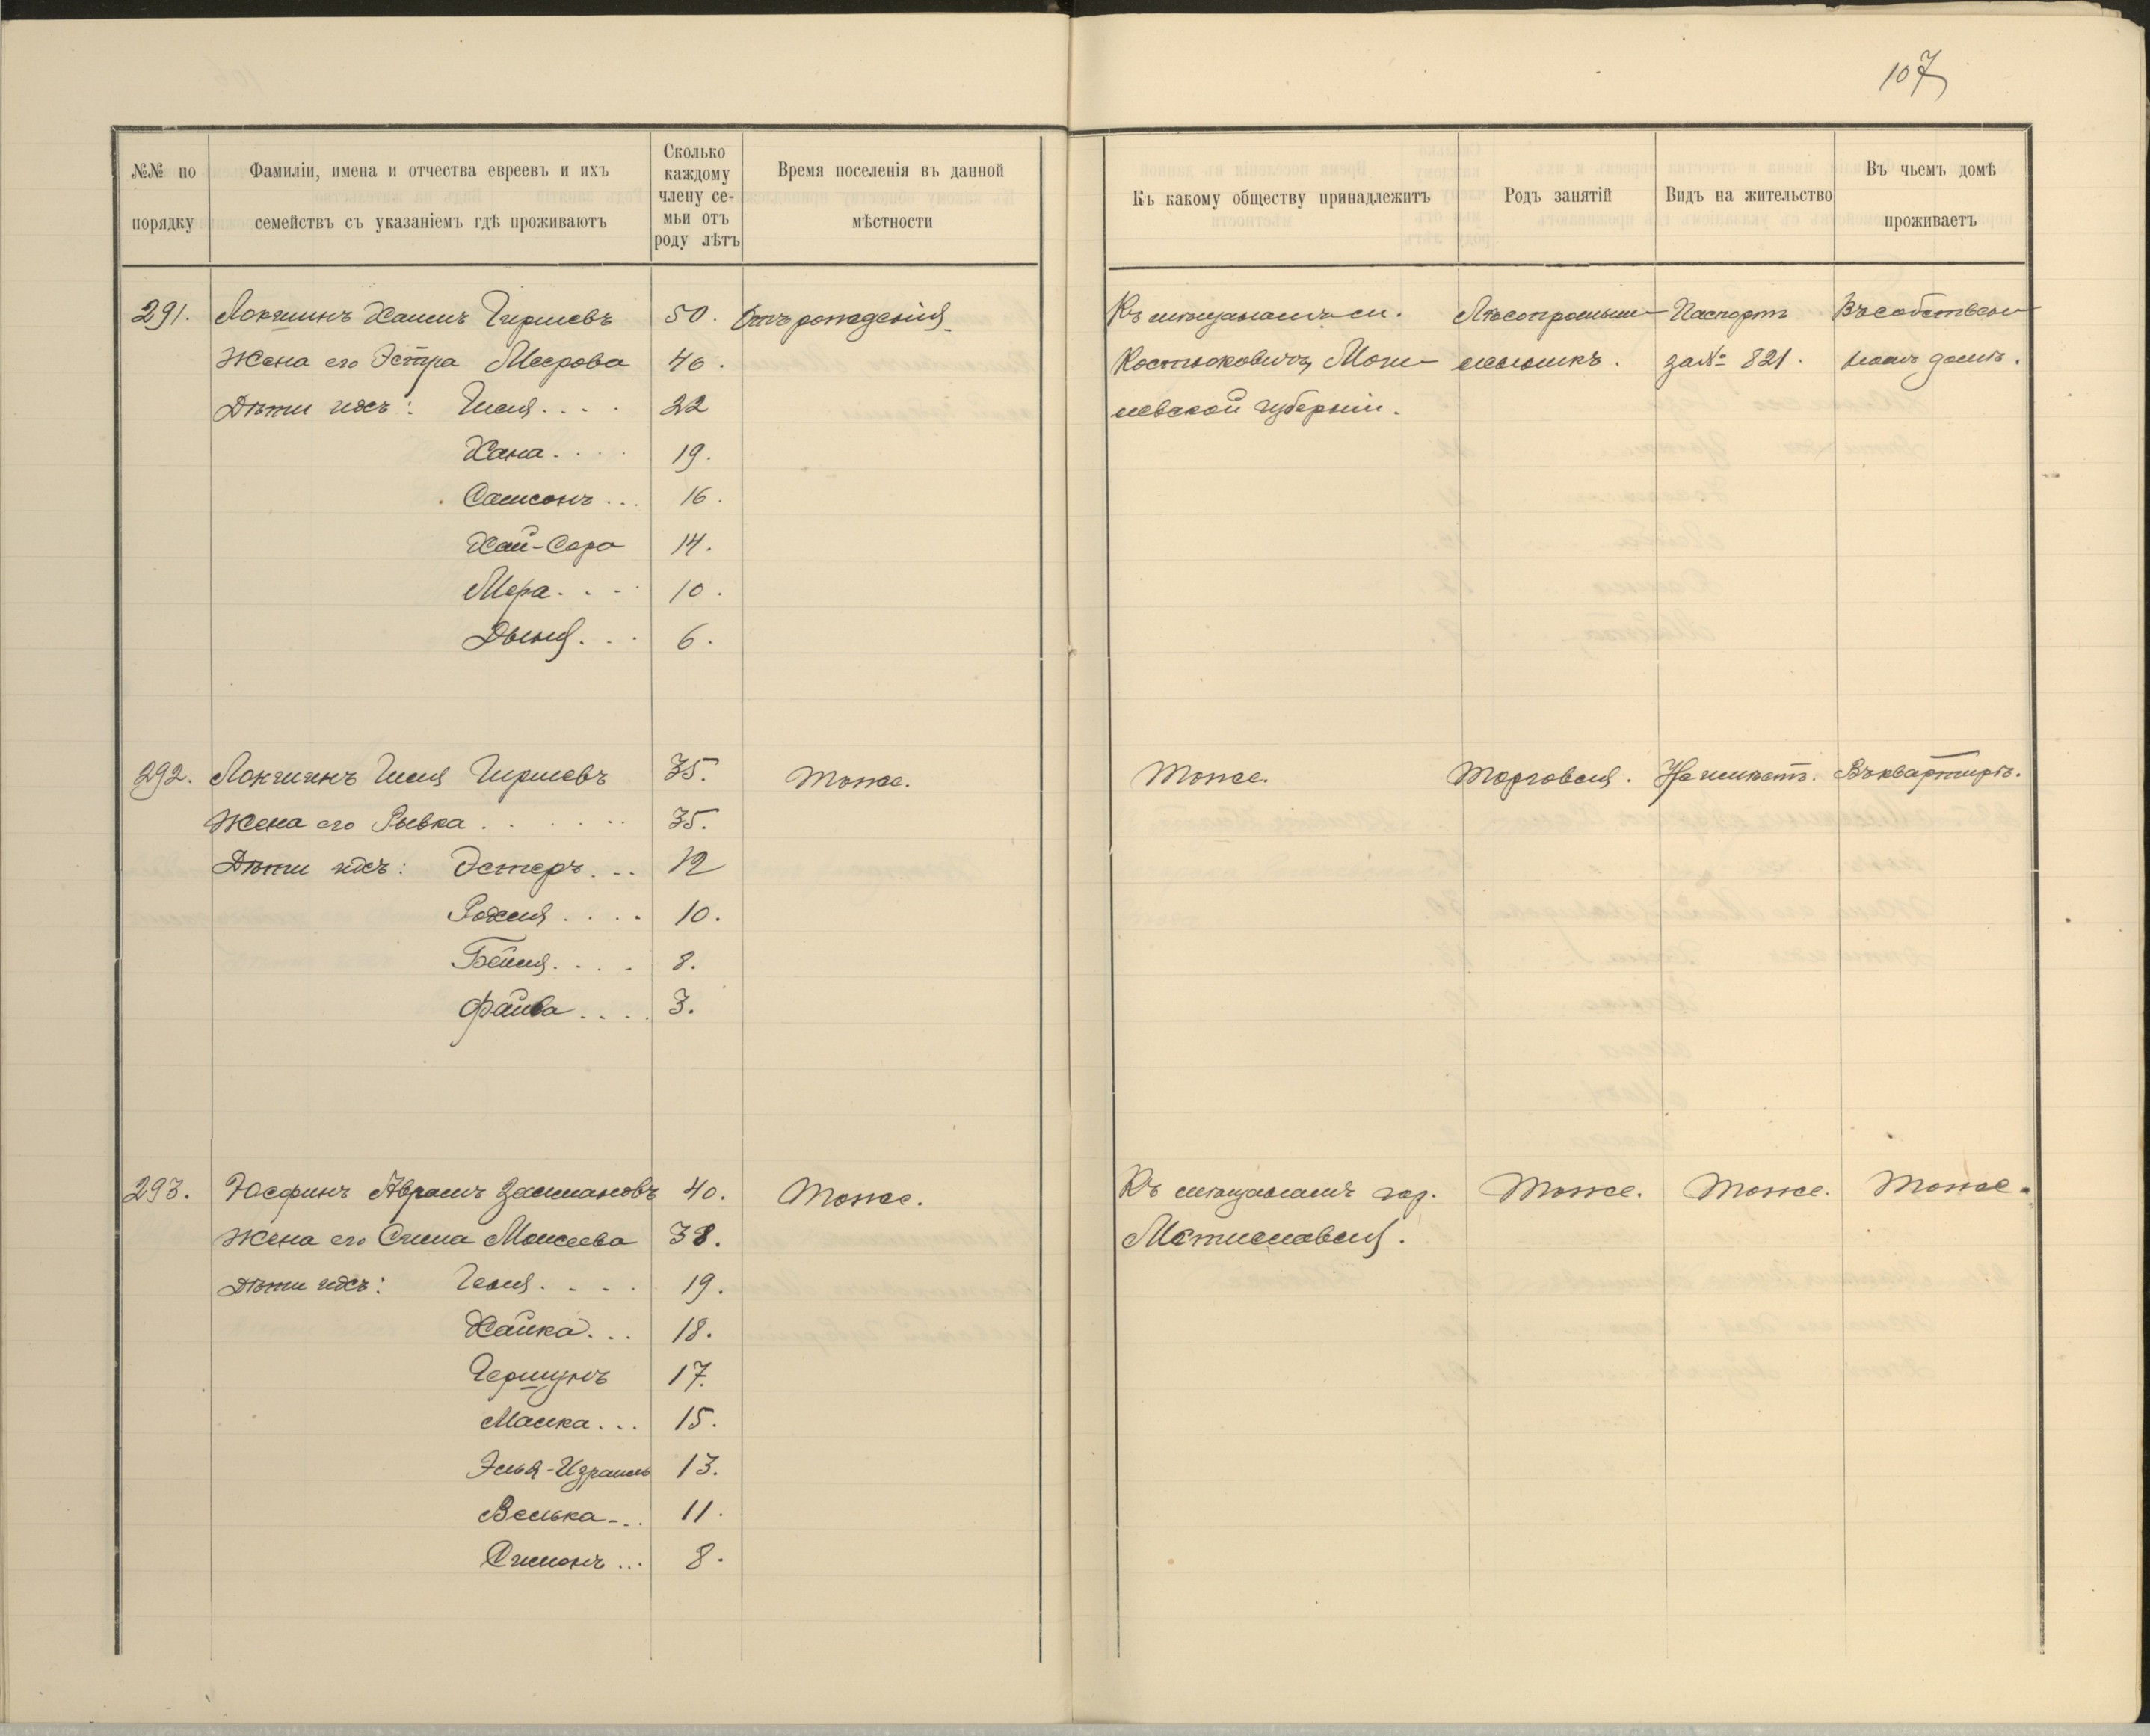 107
№№ по порядку
Фамиліи, имена и отчества евреевъ и ихъ семействъ съ указаніемъ гдѣ проживаютъ
Сколько каждому члену семьи отъ роду лѣтъ
Время поселенія въ данной мѣстности
Къ какому обществу принадлежитъ
Родъ занятій
Видъ на жительство
Въ чьемъ домѣ проживаетъ
291. Локшинъ Хаимъ Гиршевъ 50. Отъ рожденія Къ мѣщанамъ м. Лѣсопромыш- Паспортъ Въ собствен-
Жена его Эстра Меерова 46. Костюковичъ, Моги- ленникъ. за № 821. номъ домѣ.
Дѣти ихъ: 22 левской губерніи.
Хана 19.
Самсонъ 16.
Хай-Сора 14.
Мера 10.
6.
292. Локшинъ Гиршевъ 35. Тоже. Тоже. Торговля. Не имѣетъ. Въ квартирѣ.
Жена его Рывка 35.
Дѣти ихъ: Эстеръ 12
Рохля 10.
Бейля 8.
Файва 3.
293. Юсфинъ Абрамъ Залмановъ 40. Тоже. Къ мѣщанамъ гор. Тоже. Тоже. Тоже.
Жена его Сима Моисеева 38. Мстиславля.
Дѣти ихъ: 19.
Хайка 18.
Гершунъ 17.
Малка 15.
Элья-Израиль 13.
Велька 11.
Симонъ 8.